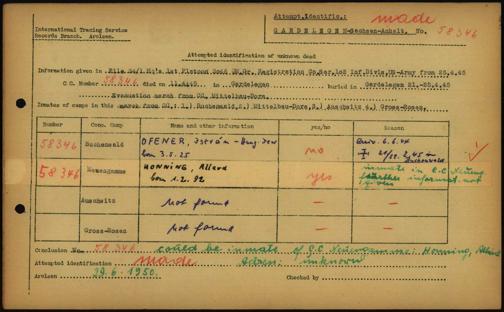 Attempt.Identific.: made
International Tracing Service
Records Branch. Arolsen.
GARDELEGEN-Sachsen-Anhalt. No. 58346
Attempted identification of unknown dead
Information given in File 24/1 Hq's 1st Platoon Good QM.Gr. Registration Co. Ser. 102 Inf.Divis. US-Army from 25.4.45
C.C. Number 58346 died on 13.4.45 in Gardelegen Buried in Gardelegen 21.-25.4.45
Evacuation march from CC. Mittelbau-Dora.
Inmates of camps in this march from CC.: 1.) Buchenwald 2.) Mittelbau-Dora, 3.) Auschwitz 4.) Gross-Rosen.
Number Conc. Camp Name and other information yes/no Reason
58346 Buchenwald OFENER, István - Ung. Jew
born 3.5.25 no
58346 Neuengamme HONNING, Allard
born 1.2.92 yes inmate in C.C. Neueng.
further informat. not
given
Auschwitz not found
Gross-Rosen not found
Conclusion No. 58 346 could be inmate of C.C. Neuengamme: Honning, Allard
Attempted identification made Adam: unknown
Arolsen 29.6.1950. Checked by